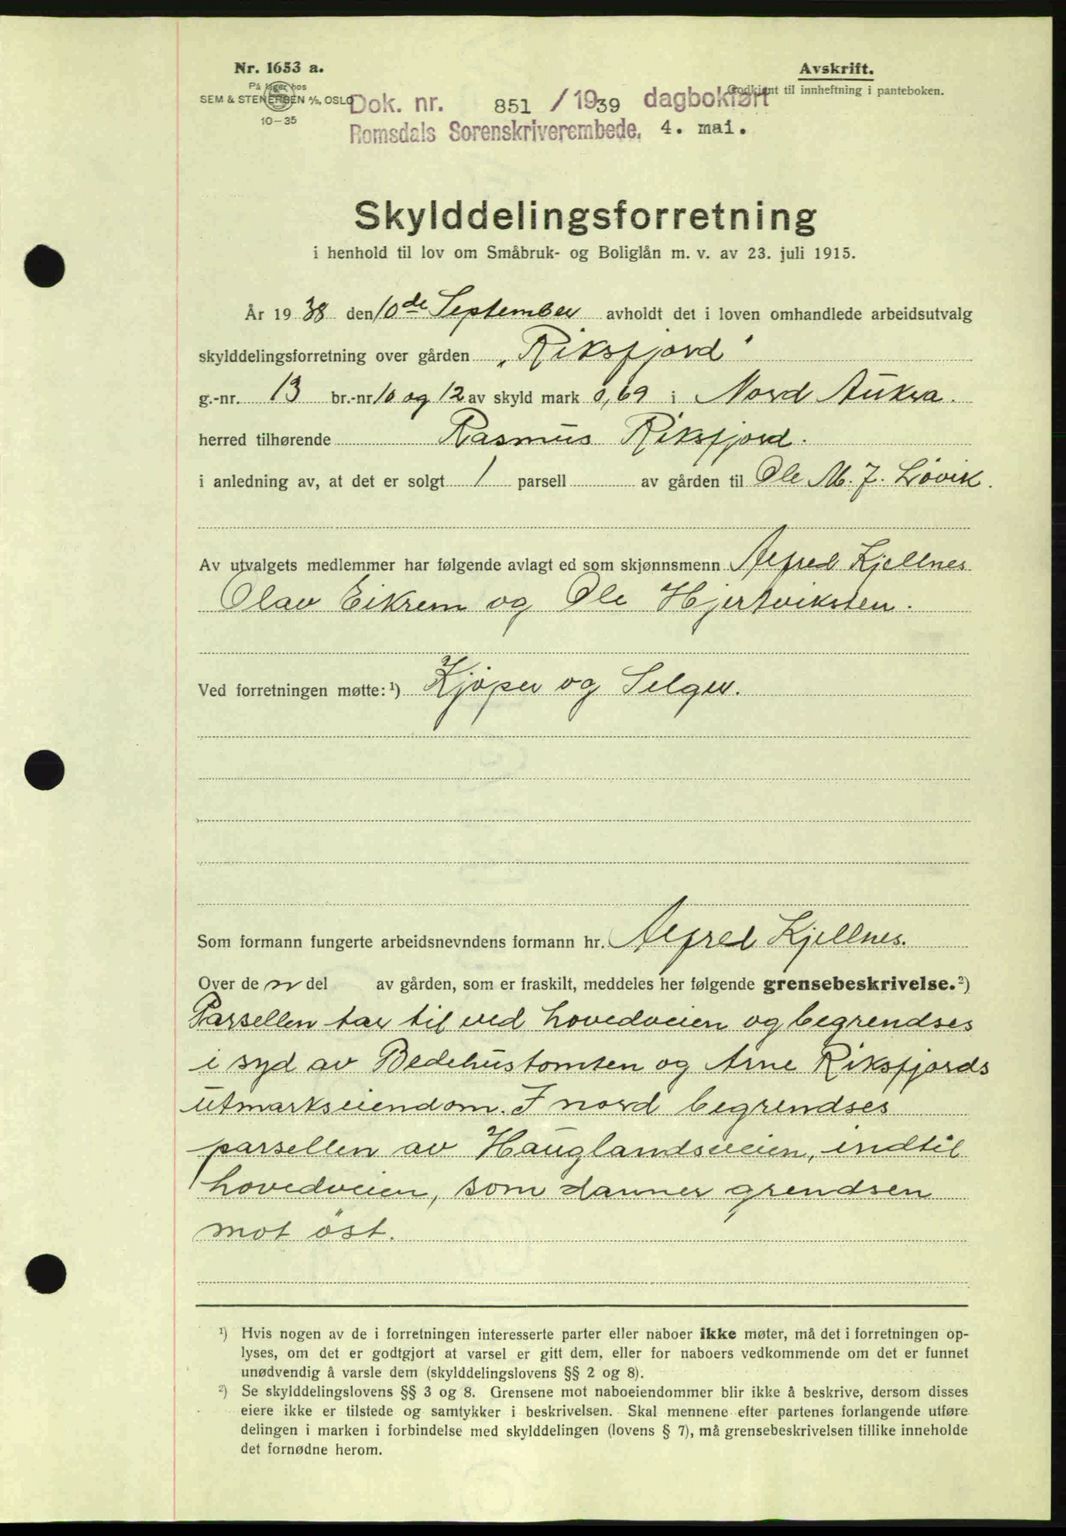 Nr. 1653 a.
På lager hos
SEM & STENERSEN A/S, OSLO
10-35
Avskrift.
Godkjent til innheftning i panteboken.
Dok. nr. 851 / 1939 dagbokført
Romsdals Sorenskriverembede, 4. mai.
Skylddelingsforretning
i henhold til lov om Småbruk- og Boliglån m. v. av 23. juli 1915.
År 1938 den 10de September avholdt det i loven omhandlede arbeidsutvalg
skylddelingsforretning over gården „Riksfjord"
g.-nr. 13 br.-nr 10 og 12 av skyld mark 0,69 i Nord Aukra.
herred tilhørende Rasmus Riksfjord.
i anledning av, at det er solgt 1 parsell av gården til Ole M. J. Løvik.
Av utvalgets medlemmer har følgende avlagt ed som skjønnsmenn Alfred Kjellnes
Olav Eikrem og Ole Hjertviksten.
Ved forretningen møtte: ¹) Kjøper og Selger.
Som formann fungerte arbeidsnevndens formann hr. Alfred Kjellnes.
Over de n del av gården, som er fraskilt, meddeles her følgende grensebeskrivelse.²)
Parsellen tar til ved hovedveien og begrendses
i syd av Bedehustomten og Arne Riksfjords
utmarkseiendom. I nord begrendses
parsellen av Hauglandsveien, indtil
hovedveien, som danner grendsen
mot öst.
¹) Hvis nogen av de i forretningen interesserte parter eller naboer ikke møter, må det i forretningen op-
lyses, om det er godtgjort at varsel er gitt dem, eller for naboers vedkommende om det er funnet
unødvendig å varsle dem (skylddelingslovens §§ 2 og 8).
²) Se skylddelingslovens §§ 3 og 8. Grensene mot naboeiendommer blir ikke å beskrive, dersom disses
eiere ikke er tilstede og samtykker i beskrivelsen. Skal mennene efter partenes forlangende utføre
delingen i marken i forbindelse med skylddelingen (lovens § 7), må grensebeskrivelsen tillike inneholde
det fornødne herom.